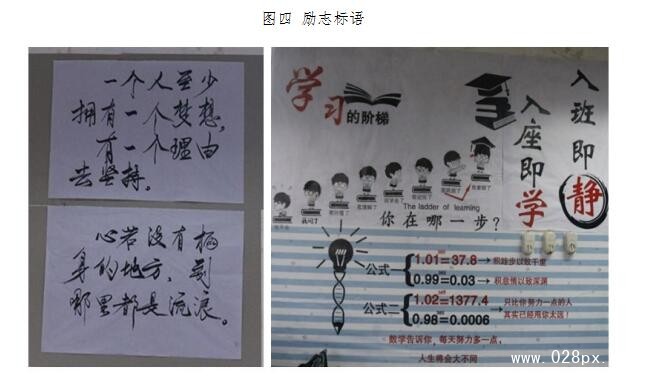 图四 励志标语
一个人至少
拥有一个梦想,
有一个理由
去坚持。
心若没有栖
身的地方,到
哪里都是流浪。
学习的阶梯
The ladder of learning
你在哪一步?
入班即静
入座即学
公式一
1.01=37.8
积跬步以致千里
0.99=0.03
积怠惰以致深渊
公式二
1.02=1377.4
0.98=0.0006
只比你努力一点的人
其实已经甩你太远!
数学告诉你,每天努力多一点,
人生将会大不同
www.028px.